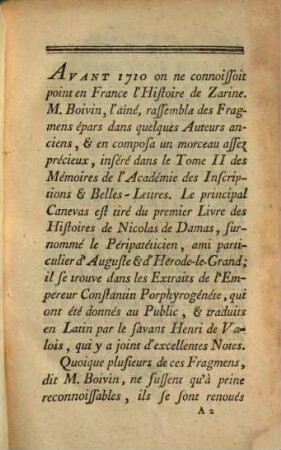 AVANT 1710 on ne connoissoit
point en France l'Histoire de Zarine.
M. Boivin, l'aîné, rassembla des Frag-
mens épars dans quelques Auteurs an-
ciens, & en composa un morceau assez
précieux, inséré dans le Tome II des
Mémoires de l'Académie des Inscrip-
tions & Belles-Lettres. Le principal
Canevas est tiré du premier Livre des
Histoires de Nicolas de Damas, sur-
nommé le Péripatéticien, ami parti-
culier d'Auguste & d'Hérode-le-Grand;
il se trouve dans les Extraits de l'Em-
pereur Constantin Porphyrogénéte, qui
ont été donnés au Public, & traduits
en Latin par le savant Henri de Va-
lois, qui y a joint d'excellentes Notes.
Quoique plusieurs de ces Fragmens,
dit M. Boivin, ne fussent qu'à peine
reconnoissables, ils se sont renoués
A 2